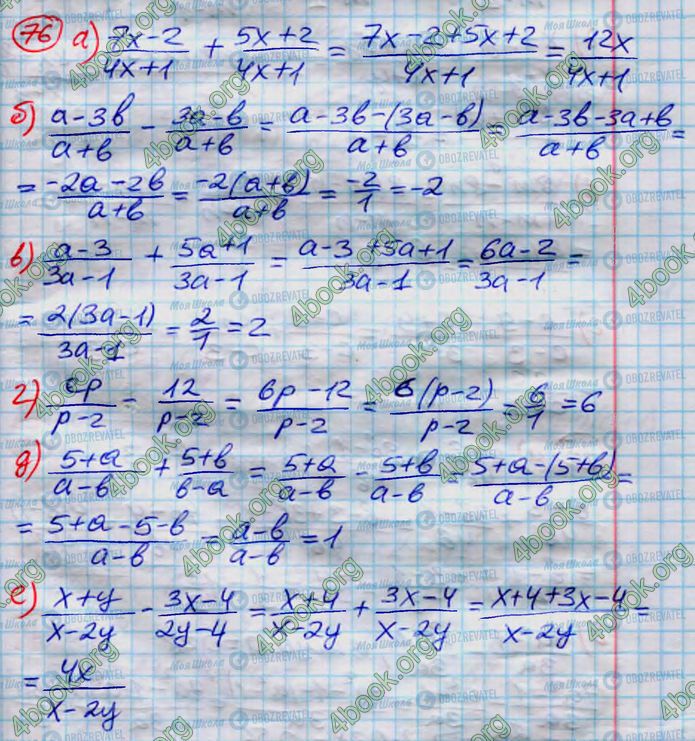 76 а) (7x-2)/(4x+1) + (5x+2)/(4x+1) = (7x-2+5x+2)/(4x+1) = 12x/(4x+1)
б) (a-3b)/(a+b) - (3a-b)/(a+b) = (a-3b-(3a-b))/(a+b) = (a-3b-3a+b)/(a+b) =
= (-2a-2b)/(a+b) = (-2(a+b))/(a+b) = -2/1 = -2
в) (a-3)/(3a-1) + (5a+1)/(3a-1) = (a-3+5a+1)/(3a-1) = (6a-2)/(3a-1) =
= 2(3a-1)/(3a-1) = 2/1 = 2
г) 6p/(p-2) - 12/(p-2) = (6p-12)/(p-2) = 6(p-2)/(p-2) = 6/1 = 6
д) (5+a)/(a-b) + (5+b)/(b-a) = (5+a)/(a-b) - (5+b)/(a-b) = (5+a-(5+b))/(a-b) =
= (5+a-5-b)/(a-b) = (a-b)/(a-b) = 1
е) (x+y)/(x-2y) - (3x-4)/(2y-4) = (x+4)/(x-2y) + (3x-4)/(x-2y) = (x+4+3x-4)/(x-2y) =
= 4x/(x-2y)
4book.org
Моя Школа
OBOZREVATEL